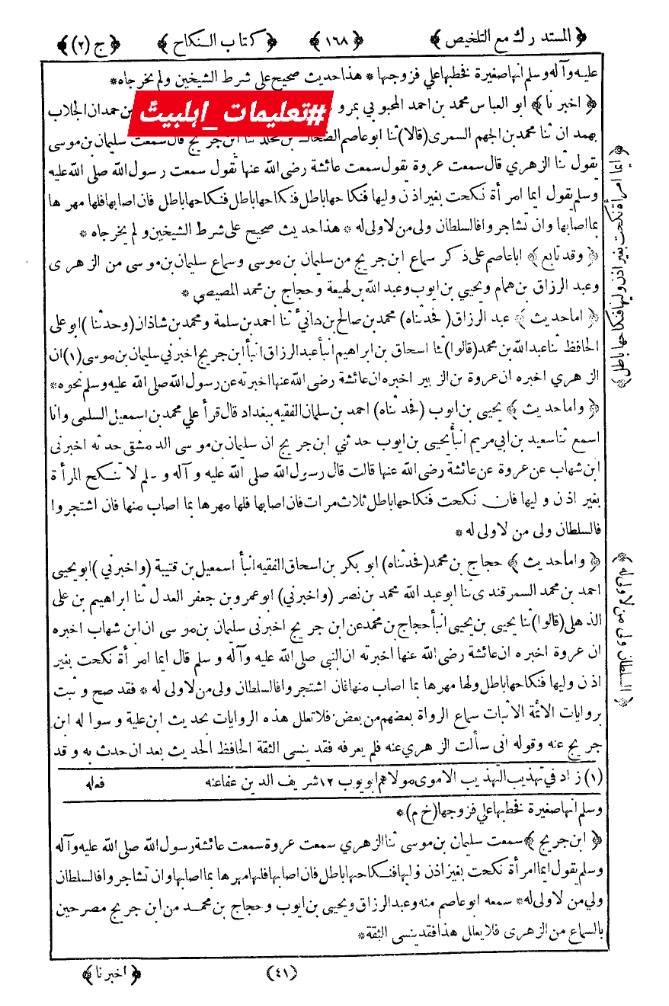 ﴿ المستدرك مع التلخيص ﴾ ﴿ ١٦٨ ﴾ ﴿ كتاب النكاح ﴾ ﴿ ج (٢) ﴾
عليه وآله وسلم انها صغيرة فخطبها علي فزوجها * هذا حديث صحيح على شرط الشيخين ولم يخرجاه *
﴿ اخبرنا ﴾ ابو العباس محمد بن احمد المحبوبي بمرو
#تعلیمات_اہلبیتؑ
بن حمدان الجلاب
بهمدان ثنا محمد بن الجهم السمرى (قالا) ثنا ابو عاصم الضحاك بن مخلد ثنا ابن جريج قال سمعت سليمان بن موسى
يقول ثنا الزهري قال سمعت عروة يقول سمعت عائشة رضى الله عنها تقول سمعت رسول الله صلى الله عليه
وسلم يقول ايما امرأة نكحت بغير اذن وليها فنكاحها باطل فنكاحها باطل فنكاحها باطل فان اصابها فلها مهرها
بما اصابها وان تشاجروا فالسلطان ولى من لا ولى له * هذا حديث صحيح على شرط الشيخين ولم يخرجاه *
﴿ وقد تابع ﴾ ابا عاصم على ذكر سماع ابن جريج من سليمان بن موسى وسماع سليمان بن موسى من الزهرى
وعبد الرزاق بن همام ويحيى بن ايوب وعبد الله بن لهيعة وحجاج بن محمد المصيصى *
﴿ اما حديث ﴾ عبد الرزاق (فحدثناه) محمد بن صالح بن هانئ ثنا احمد بن سلمة ومحمد بن شاذان (وحدثنا) ابو على
الحافظ ثنا عبد الله بن محمد (قالوا) ثنا اسحاق بن ابراهيم انبأ عبد الرزاق انبأ ابن جريج اخبرني سليمان بن موسى (١) ان
الزهري اخبره ان عروة بن الزبير اخبره ان عائشة رضى الله عنها اخبرته عن رسول الله صلى الله عليه وسلم نحوه *
﴿ واما حديث ﴾ يحيى بن ايوب (فحدثناه) احمد بن سلمان الفقيه ببغداد قال قرأ على محمد بن اسمعيل السلمى وانا
اسمع ثنا سعيد بن ابى مريم انبأ يحيى بن ايوب حدثني ابن جريج ان سليمان بن موسى الدمشقى حدثه اخبرنى
ابن شهاب عن عروة عن عائشة رضى الله عنها قالت قال رسول الله صلى الله عليه وآله وسلم لا تنكح المرأة
بغير اذن وليها فان نكحت فنكاحها باطل ثلاث مرات فان اصابها فلها مهرها بما اصاب منها فان اشتجروا
فالسلطان ولى من لا ولى له *
﴿ واما حديث ﴾ حجاج بن محمد (فحدثناه) ابو بكر بن اسحاق الفقيه انبأ اسمعيل بن قتيبة (واخبرنى) ابو يحيى
احمد بن محمد السمرقندى ثنا ابو عبد الله محمد بن نصر (واخبرنى) ابو عمرو بن جعفر العدل ثنا ابراهيم بن على
الذهلى (قالوا) ثنا يحيى بن يحيى انبأ حجاج بن محمد عن ابن جريج اخبرنى سليمان بن موسى ان ابن شهاب اخبره
ان عروة اخبره ان عائشة رضى الله عنها اخبرته ان النبي صلى الله عليه وآله وسلم قال ايما امرأة نكحت بغير
اذن وليها فنكاحها باطل ولها مهرها بما اصاب منها فان اشتجروا فالسلطان ولى من لا ولى له * فقد صح وثبت
بروايات الائمة الاثبات سماع الرواة بعضهم من بعض فلا تعلل هذه الروايات بحديث ابن علية وسؤاله ابن
جريج عنه وقوله انى سألت الزهري عنه فلم يعرفه فقد ينسى الثقة الحافظ الحديث بعد ان حدث به وقد
﴿ ايما امرأة نكحت بغير اذن وليها فنكاحها باطل ﴾
﴿ السلطان ولى من لا ولى له ﴾
(١) زاد في تهذيب التهذيب الاموى مولاهم ابو ايوب ١٢ شريف الدين عفا عنه
فعله
وسلم انها صغيرة فخطبها علي فزوجها (خ م) *
﴿ ابن جريج ﴾ سمعت سليمان بن موسى ثنا الزهرى سمعت عروة سمعت عائشة رسول الله صلى الله عليه وآله
وسلم يقول ايما امرأة نكحت بغير اذن وليها فنكاحها باطل فان اصابها فلها مهرها بما اصابها وان تشاجروا فالسلطان
ولي من لا ولى له * سمعه ابو عاصم منه وعبد الرزاق ويحيى بن ايوب وحجاج بن محمد من ابن جريج مصرحين
بالسماع من الزهرى فلا يعلل هذا فقد ينسى الثقة *
(٤١) ﴿ اخبرنا ﴾